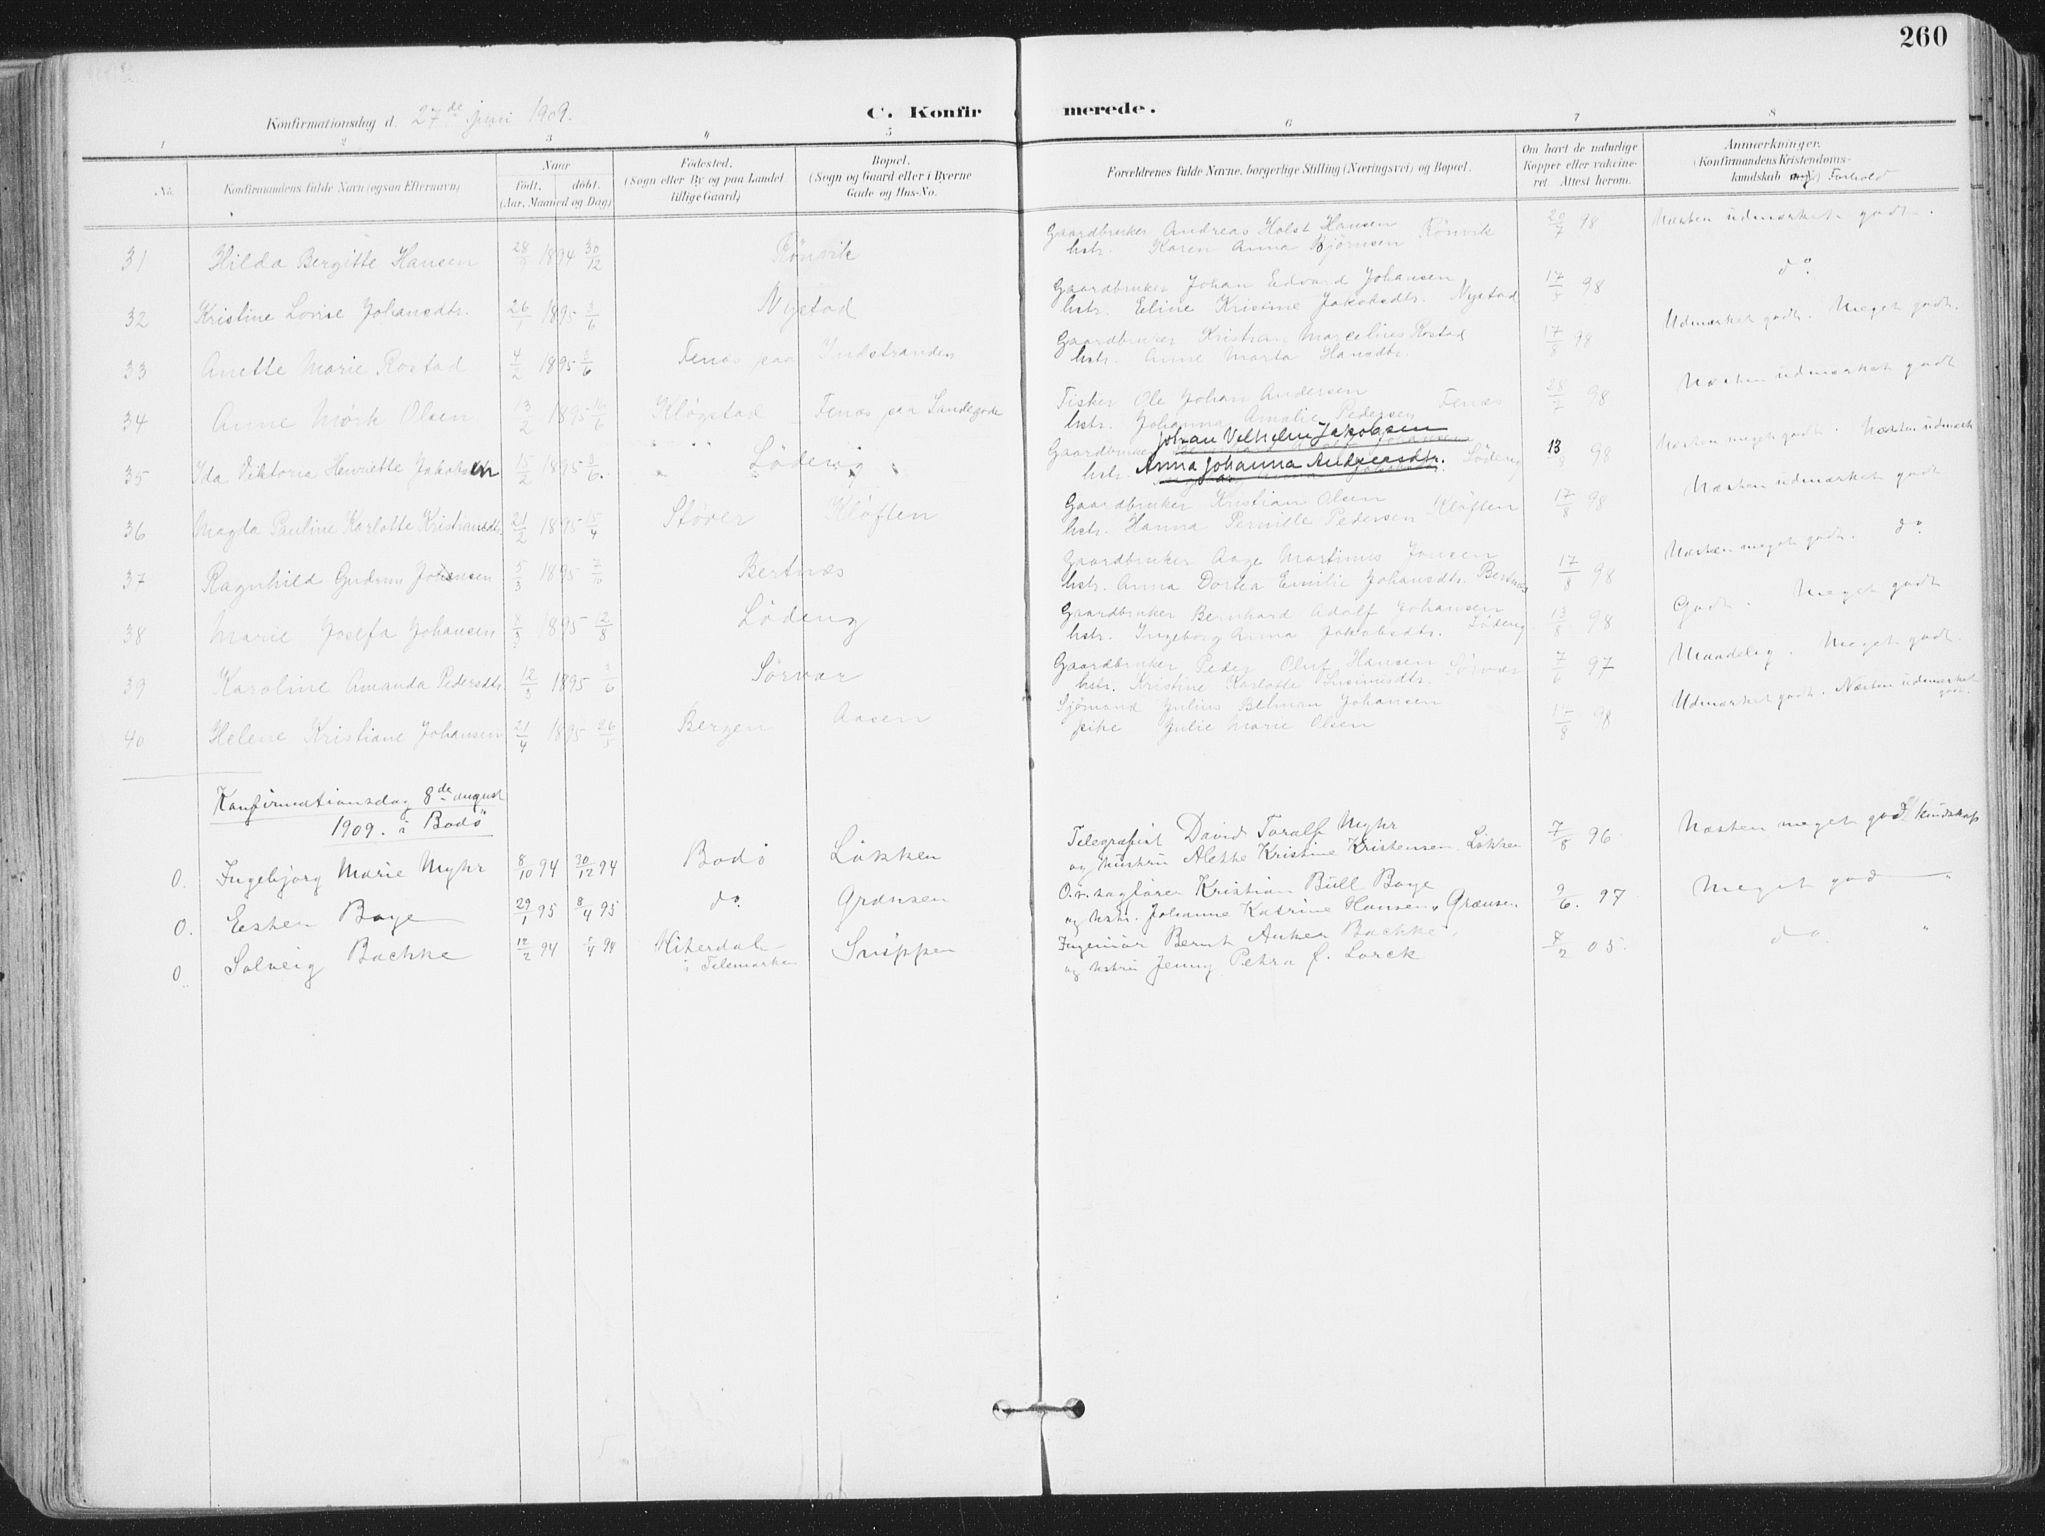 260
Konfirmationsdag d. 27de juni 1909.
C. Konfirmerede.
1 2 3 4 5 6 7 8
No. Konfirmandens fulde Navn (ogsaa Efternavn)
Naar født. døbt. (Aar, Maaned og Dag)
Fødested. (Sogn eller By og paa Landet tillige Gaard)
Bopæl. (Sogn og Gaard eller i Byerne Gade og Hus-No.
Forældrenes fulde Navne, borgerlige Stilling (Næringsvei) og Bopæl.
Om havt de naturlige Kopper eller vaccineret. Attest herom.
Anmærkninger. (Konfirmandens Kristendomskundskab og) Forhold
31 Hilda Bergitte Hansen 1894 30/12 Rønvik
Gaardbruker Andreas Holst Hansen
hstr. Karen Anna Bjørnsen Rønvik 20/7 98 Næsten udmerket godt.
32 Kristine Lovise Johansdtr. 1895 Nystad
Gaardbruker Johan Edvard Johansen
hstr. Eline Kristine Jakobsdtr. Nystad 98 do.
33 Anette Marie Rostad 4/2 1895 Fenæs paa Indstranden
Gaardbruker Kristian Marcelius Rostad
hstr. Anne Marta Hansdtr. 17/8 98 Udmærket godt. Meget godt.
34 Anne Mørk Olsen 13/2 1895 Kløgstad Fenæs paa Landegode
Fisker Ole Johan Andersen
hstr. Johanna Amalie Pedersen Fenæs 28/7 98 Næsten udmærket godt
35 Ida Viktoria Henriette Jakobsen 15/2 1895 Løding
Gaardbruker Johan Vilhelm Jakobsen
hstr. Anna Johanna Andreasdtr. Løding 13/8 98 Næsten meget godt. Næsten udmærk
36 Magda Pauline Karlotte Kristiansdtr. 21/2 1895 15/4 Støver Kløften
Gaardbruker Kristian Olsen
hstr. Hanna Pernille Pedersen Kløften 17/8 98 Næsten udmærket godt
37 Ragnhild Gudrun Jensen 5/3 1895 Bertnæs
Gaardbruker Aage Martinus Jensen
hstr. Anna Dortea Emilie Johansdtr. Bertnæs 17/8 98 Næsten meget godt. do.
38 Marie Josefa Johansen 8/3 1895 12/8 Løding
Gaardbruker Bernhard Adolf Johansen
hstr. Ingeborg Anna Jakobsdtr. Løding 13/8 98 Godt. Meget godt
39 Karoline Amanda Pedersdtr. 12/3 1895 Sørvær
Gaardbruker Peder Oluf Hansen Sørvær
hstr. Kristine Karlotte 7/6 97 Maadelig. Meget godt.
40 Helene Kristiane Johansen 21/4 1895 26/5 Bergen Aasen
Sjømand Julius Johansen
pike Julie Marie Olsen 17/8 98 Udmærket godt. Næsten udmærket godt.
Konfirmationsdag 8de august
1909. i Bodø
0. Ingebjørg Marie Myhr 8/10 94 30/12 94 Bodø Løkken
Telegrafist David Toralf Myhr
og hustru Alethe Kristine Kristensen. Løkken 7/8 96 Næsten meget god kundskap
0. Esther Boye 29/1 95 8/4 95 do. Grænsen
O.r.sagfører Kristian Bull Boye
og hstr. Johanne Katrine Hansen, Grænsen 9/6. 97 Meget god "
0. Solveig Bachke 12/2 94 94 Hiterdal i Telemarken Snippen
Ingeniør Bernt Anker Bachke.
og hstru Jenny Petra f. Lorck 05. do. "